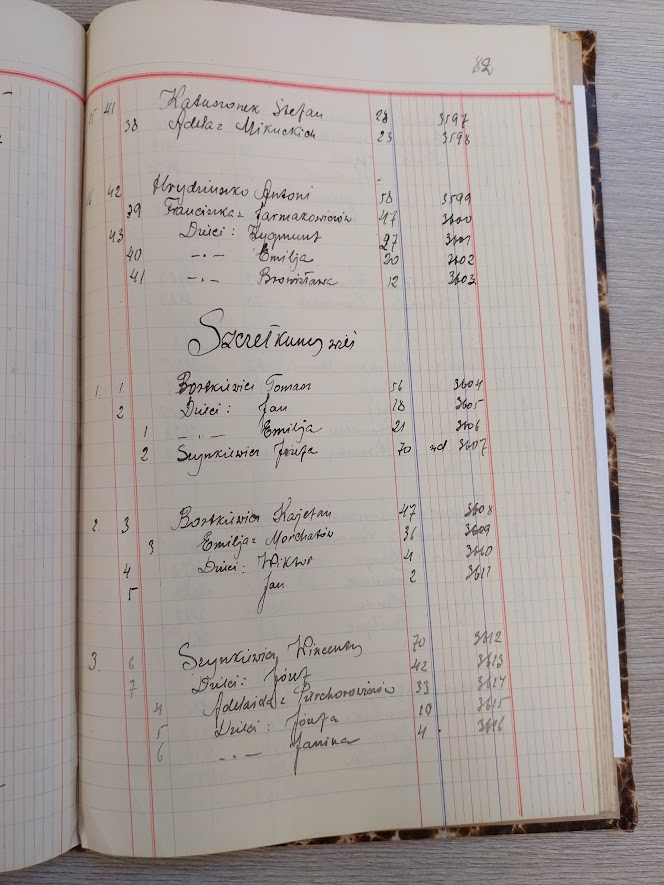 82
15 41 Katuszonek Stefan 28 3597
38 Adela z Mikuckich 23 3598
42 Hrydziuszko Antoni 58 3599
39 Franciszka z Jarmakowiczów 47 3600
43 Dzieci: Zygmunt 27 3601
40 -"- Emilja 20 3602
41 -"- Bronisława 12 3603
Szczetkuny wieś
1. 1. Bortkiewicz Tomasz 56 3604
2 Dzieci: Jan 18 3605
1 -"- Emilja 21 3606
2 Szynkiewicz Józefa 70 3607
2. 3 Bortkiewicz Kajetan 47 3608
3 Emilja z Morchatów 36 3609
4 Dzieci: Wiktor 4 3610
5 Jan 2 3611
3. 6 Szynkiewicz Wincenty 70 3612
7 Dzieci: Józef 42 3613
4 Adelaida z 33 3614
5 Dzieci: Józefa 10 3615
6 -"- Janina 4 3616